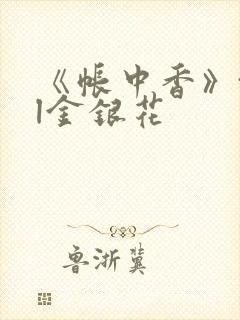 《帐中香》
|金银花
鲁浙冀